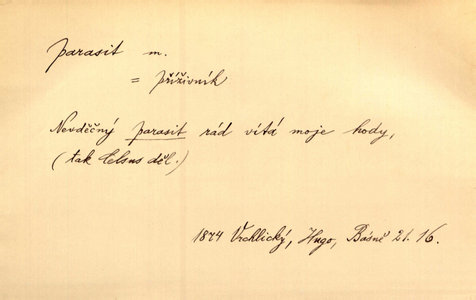 parasit m.
= příživník
Nevděčný parasit rád vítá moje hody,
(tak Celsus děl.)
1874 Vrchlický, Hugo, Básně 21. 16.